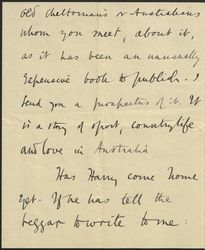 old Cheltonians & Australians
whom you meet, about it,
as it has been an unusually
expensive book to publish. I
send you a prospectus of it. It
is a story of sport, country life
and love in Australia.
Has Harry come home
yet. If he has tell the
beggar to write to me: